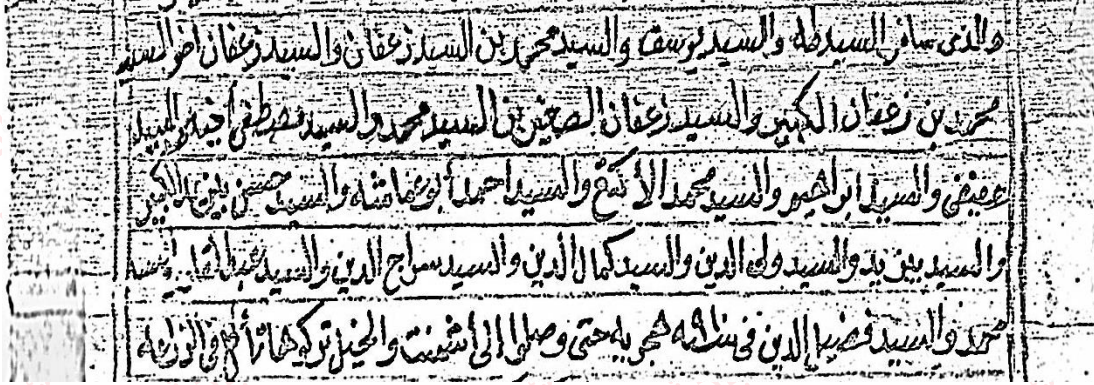 والذى سافر السيد طه والسيد يوسف والسيد محمد بن السيد زعفان والسيد زعفان اخو السيد
محمد بن زعفان الكبير والسيد زعفان الصغير بن السيد محمد والسيد مصطفى أخيه والسيد
عفيفى والسيد ابراهيم والسيد محمد الأ والسيد احمد أبو عائشه والسيد حسن الكبير
والسيد والسيد ولى الدين والسيد كمال الدين والسيد سراج الدين والسيد
محمد والسيد الدين فى هجريه حتى وصلوا إلى والخيل فى